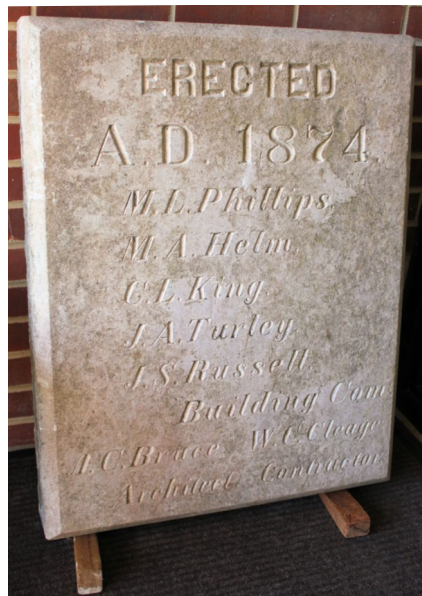 ERECTED
A.D. 1874.
M.L. Phillips.
M.A. Helm.
C.L. King.
J.A. Turley.
J.S. Russell.
Building Com.
A.C. Bruce W.C. Cleage
Architect Contractor.